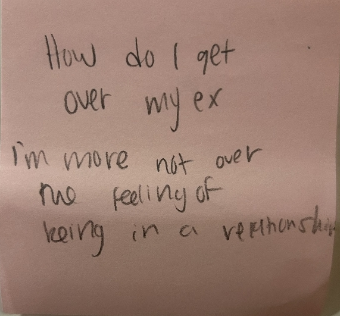 How do I get
over my ex
I'm more not over
the feeling of
being in a relationship